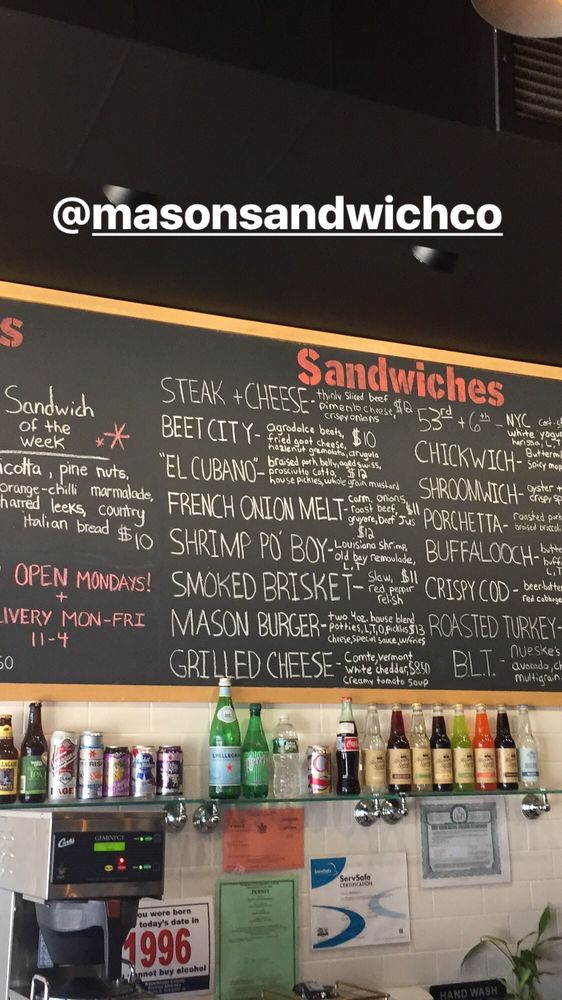 @masonsandwichco
s
Sandwich
of the
week
icotta, pine nuts,
orange-chilli marmalade,
harred leeks, country
Italian bread $10
OPEN MONDAYS!
+
LIVERY MON-FRI
11-4
50
Sandwiches
STEAK + CHEESE- thinly sliced beef
pimento cheese, $12
crispy onions
BEET CITY- agrodolce beets, $10
fried goat cheese,
hazelnut gremolata, arugula
"EL CUBANO"- braised pork belly, aged swiss,
prosciutto cotto, $12
house pickles, whole grain mustard
FRENCH ONION MELT- carm. onions,
roast beef, $11
gruyere, beef Jus
SHRIMP PO' BOY- $12
Louisiana shrimp,
old bay remoulade,
L,T
SMOKED BRISKET- Slaw, $11
red pepper
relish
MASON BURGER- two 4oz. house blend
patties, L,T,O,pickles $13
cheese, special sauce, w/fries
GRILLED CHEESE- Comte, vermont
white cheddar, $8.50
creamy tomato soup
53rd + 6th - NYC
white yogu
L,T
CHICKWICH- Butterm
Spicy
SHROOMWICH- oyster +
crispy
PORCHETTA- roasted pork
broccoli
BUFFALOOCH- butte
L,T
CRISPY COD- beer-batter
red cabbage
ROASTED TURKEY-
B.L.T. - nueske's
avocado, ch
multigrain
S.PELLEGRINO
Coca-Cola
IPA
Curtis
GEMINI
ServSafe
ServSafe
CERTIFICATION
PERMIT
ou were born
today's date in
1996
annot buy alcohol
HAND WASH